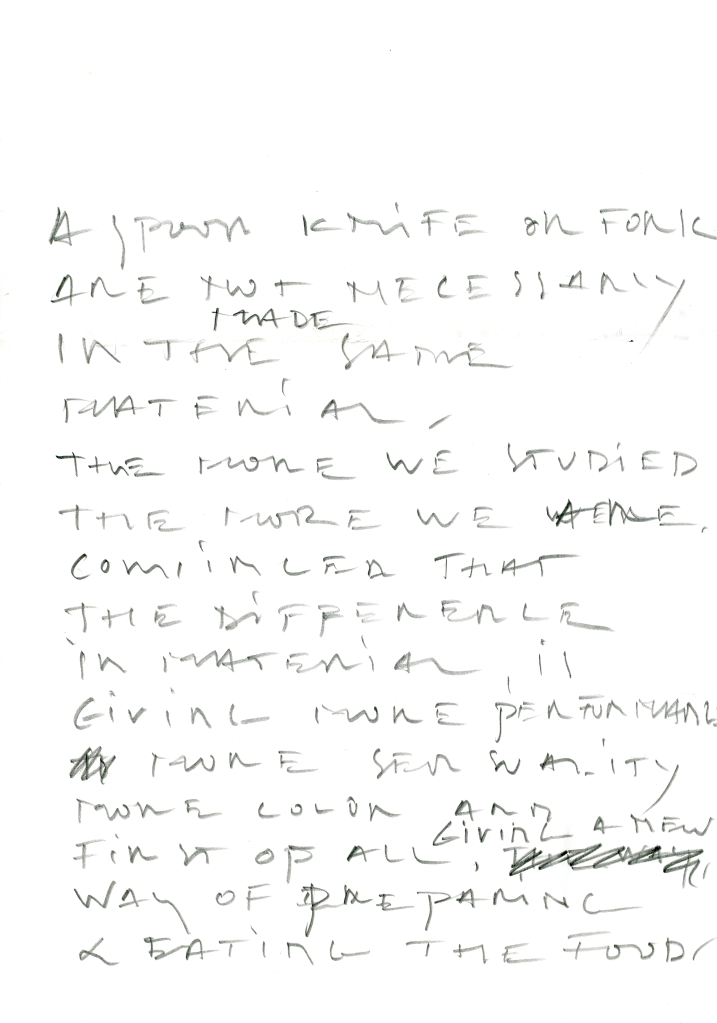 A spoon knife or fork
are not necessarly
made
in the same
material,
the more we studied
the more we were,
convinced that
the difference
in material, is
giving more performance
more sensuality
more color and
giving a new
first of all,
way of preparing
& eating the food